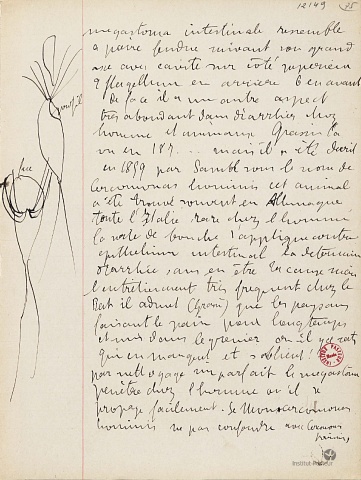 12149 75
megastoma intestinale ressemble
a poire fendue suivant son grand
axe avec cavité sur côté supérieur
2 flagellum en arrière 6 en avant
De face il a un autre aspect
très abondant dans diarrhées chez
homme et animaux Grassi l'a
vu en 187... mais il a été décrit
en 1859 par Lambl sous le nom de
cercomonas hominis cet animal
a été trouvé souvent en Allemagne
toute l'Italie rare chez l'homme
la sorte de bouche s'applique contre
epithelium intestinal la
diarrhée sans en être la cause mais
l'entretiennent très fréquent chez le
Rat il admet (Grassi) que les paysans
faisant le pain pour longtemps
et mis dans le grenier où il y a rats
qui en mangent et
par nettoyage imparfait le megastoma
pénètre chez l'homme où il se
propage facilement. Le Monocercomonas
hominis ne pas confondre avec Cercomonas
hominis
profil
face
Institut Pasteur